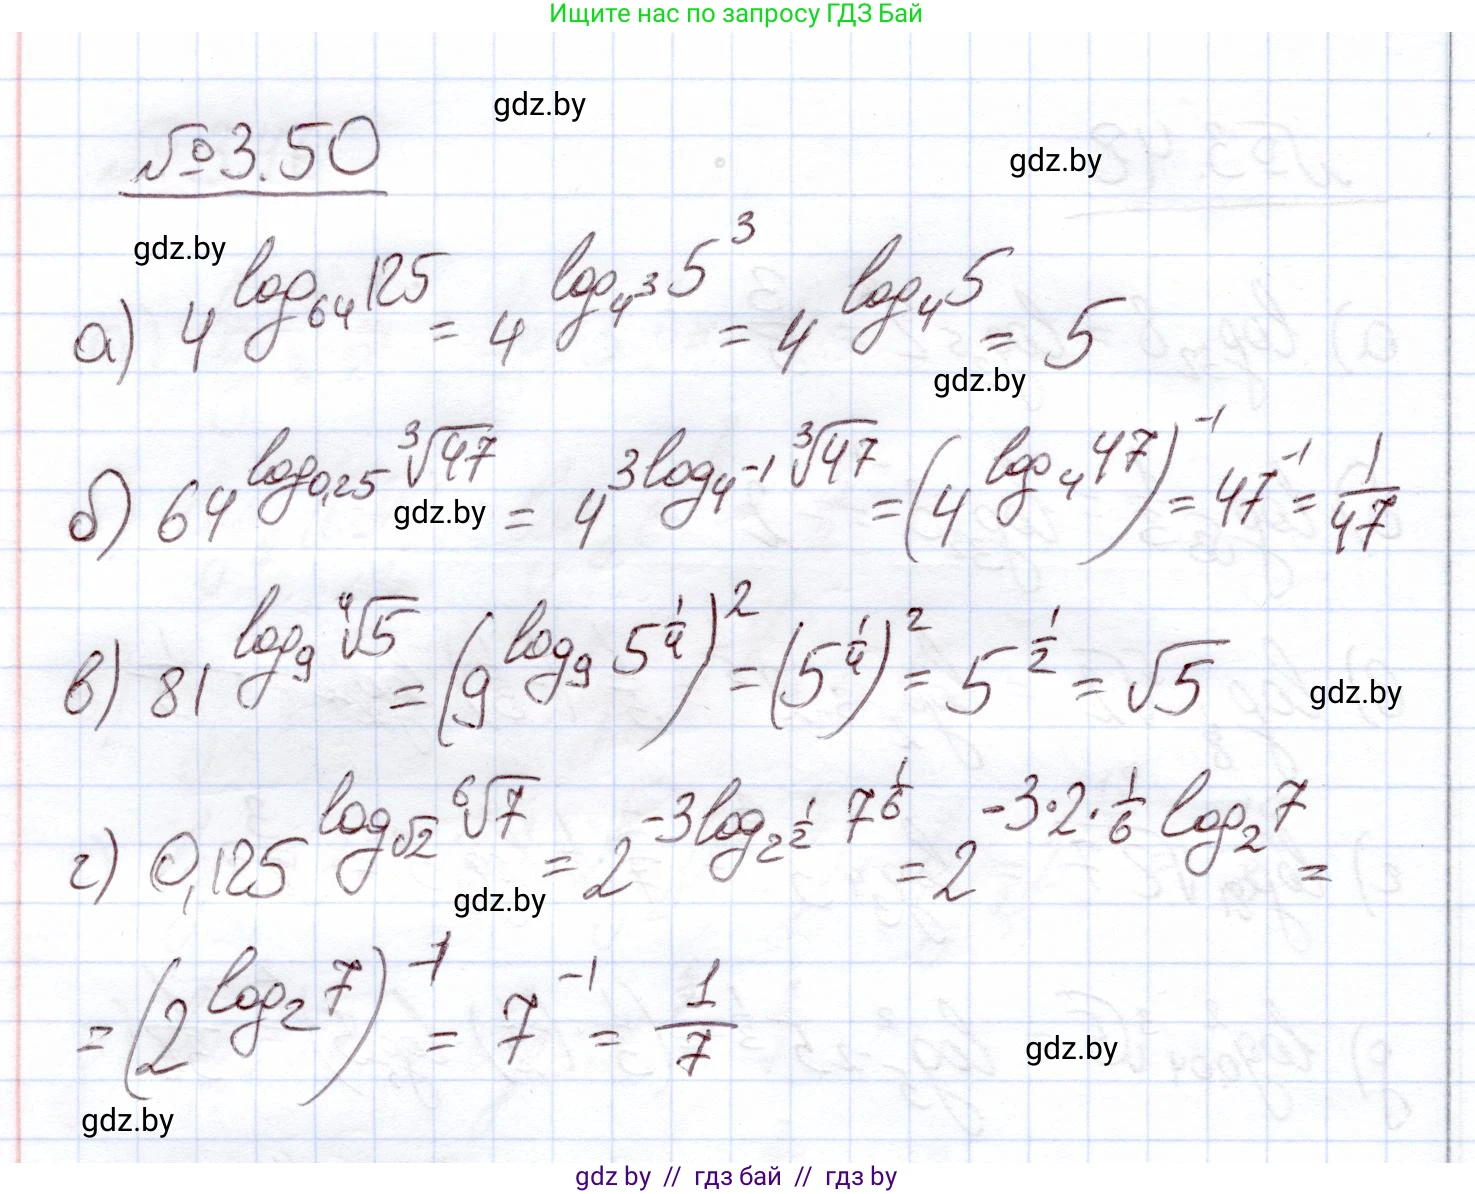 Ищите нас по запросу ГДЗ Бай
gdz.by
№3.50
gdz.by
gdz.by
а) 4^{log_{64}125} = 4^{log_{4^3}5^3} = 4^{log_4 5} = 5
gdz.by
б) 64^{log_{0,25}∛47} = 4^{3log_{4^{-1}}∛47} = (4^{log_4 47})^{-1} = 47^{-1} = 1/47
gdz.by
в) 81^{log_9 ∜5} = (9^{log_9 5^{1/4}})^2 = (5^{1/4})^2 = 5^{1/2} = √5
gdz.by
г) 0,125^{log_{√2} ⁶√7} = 2^{-3log_{2^{1/2}} 7^{1/6}} = 2^{-3·2·1/6 log_2 7} =
gdz.by
= (2^{log_2 7})^{-1} = 7^{-1} = 1/7
gdz.by
gdz.by
gdz by // гдз бай // гдз by